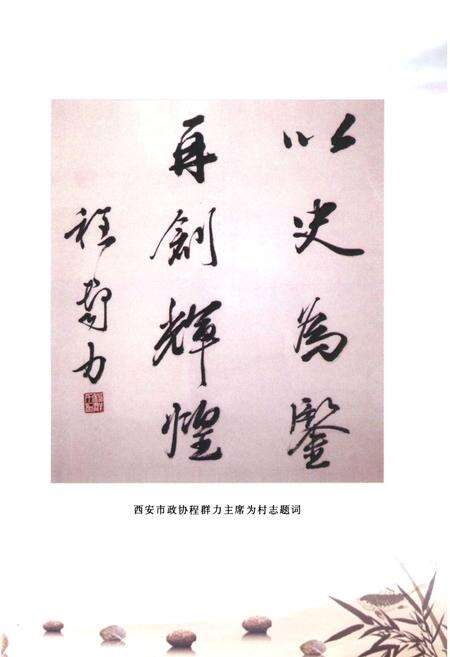 以史為鑒
再創輝煌
程群力
西安市政协程群力主席为村志题词